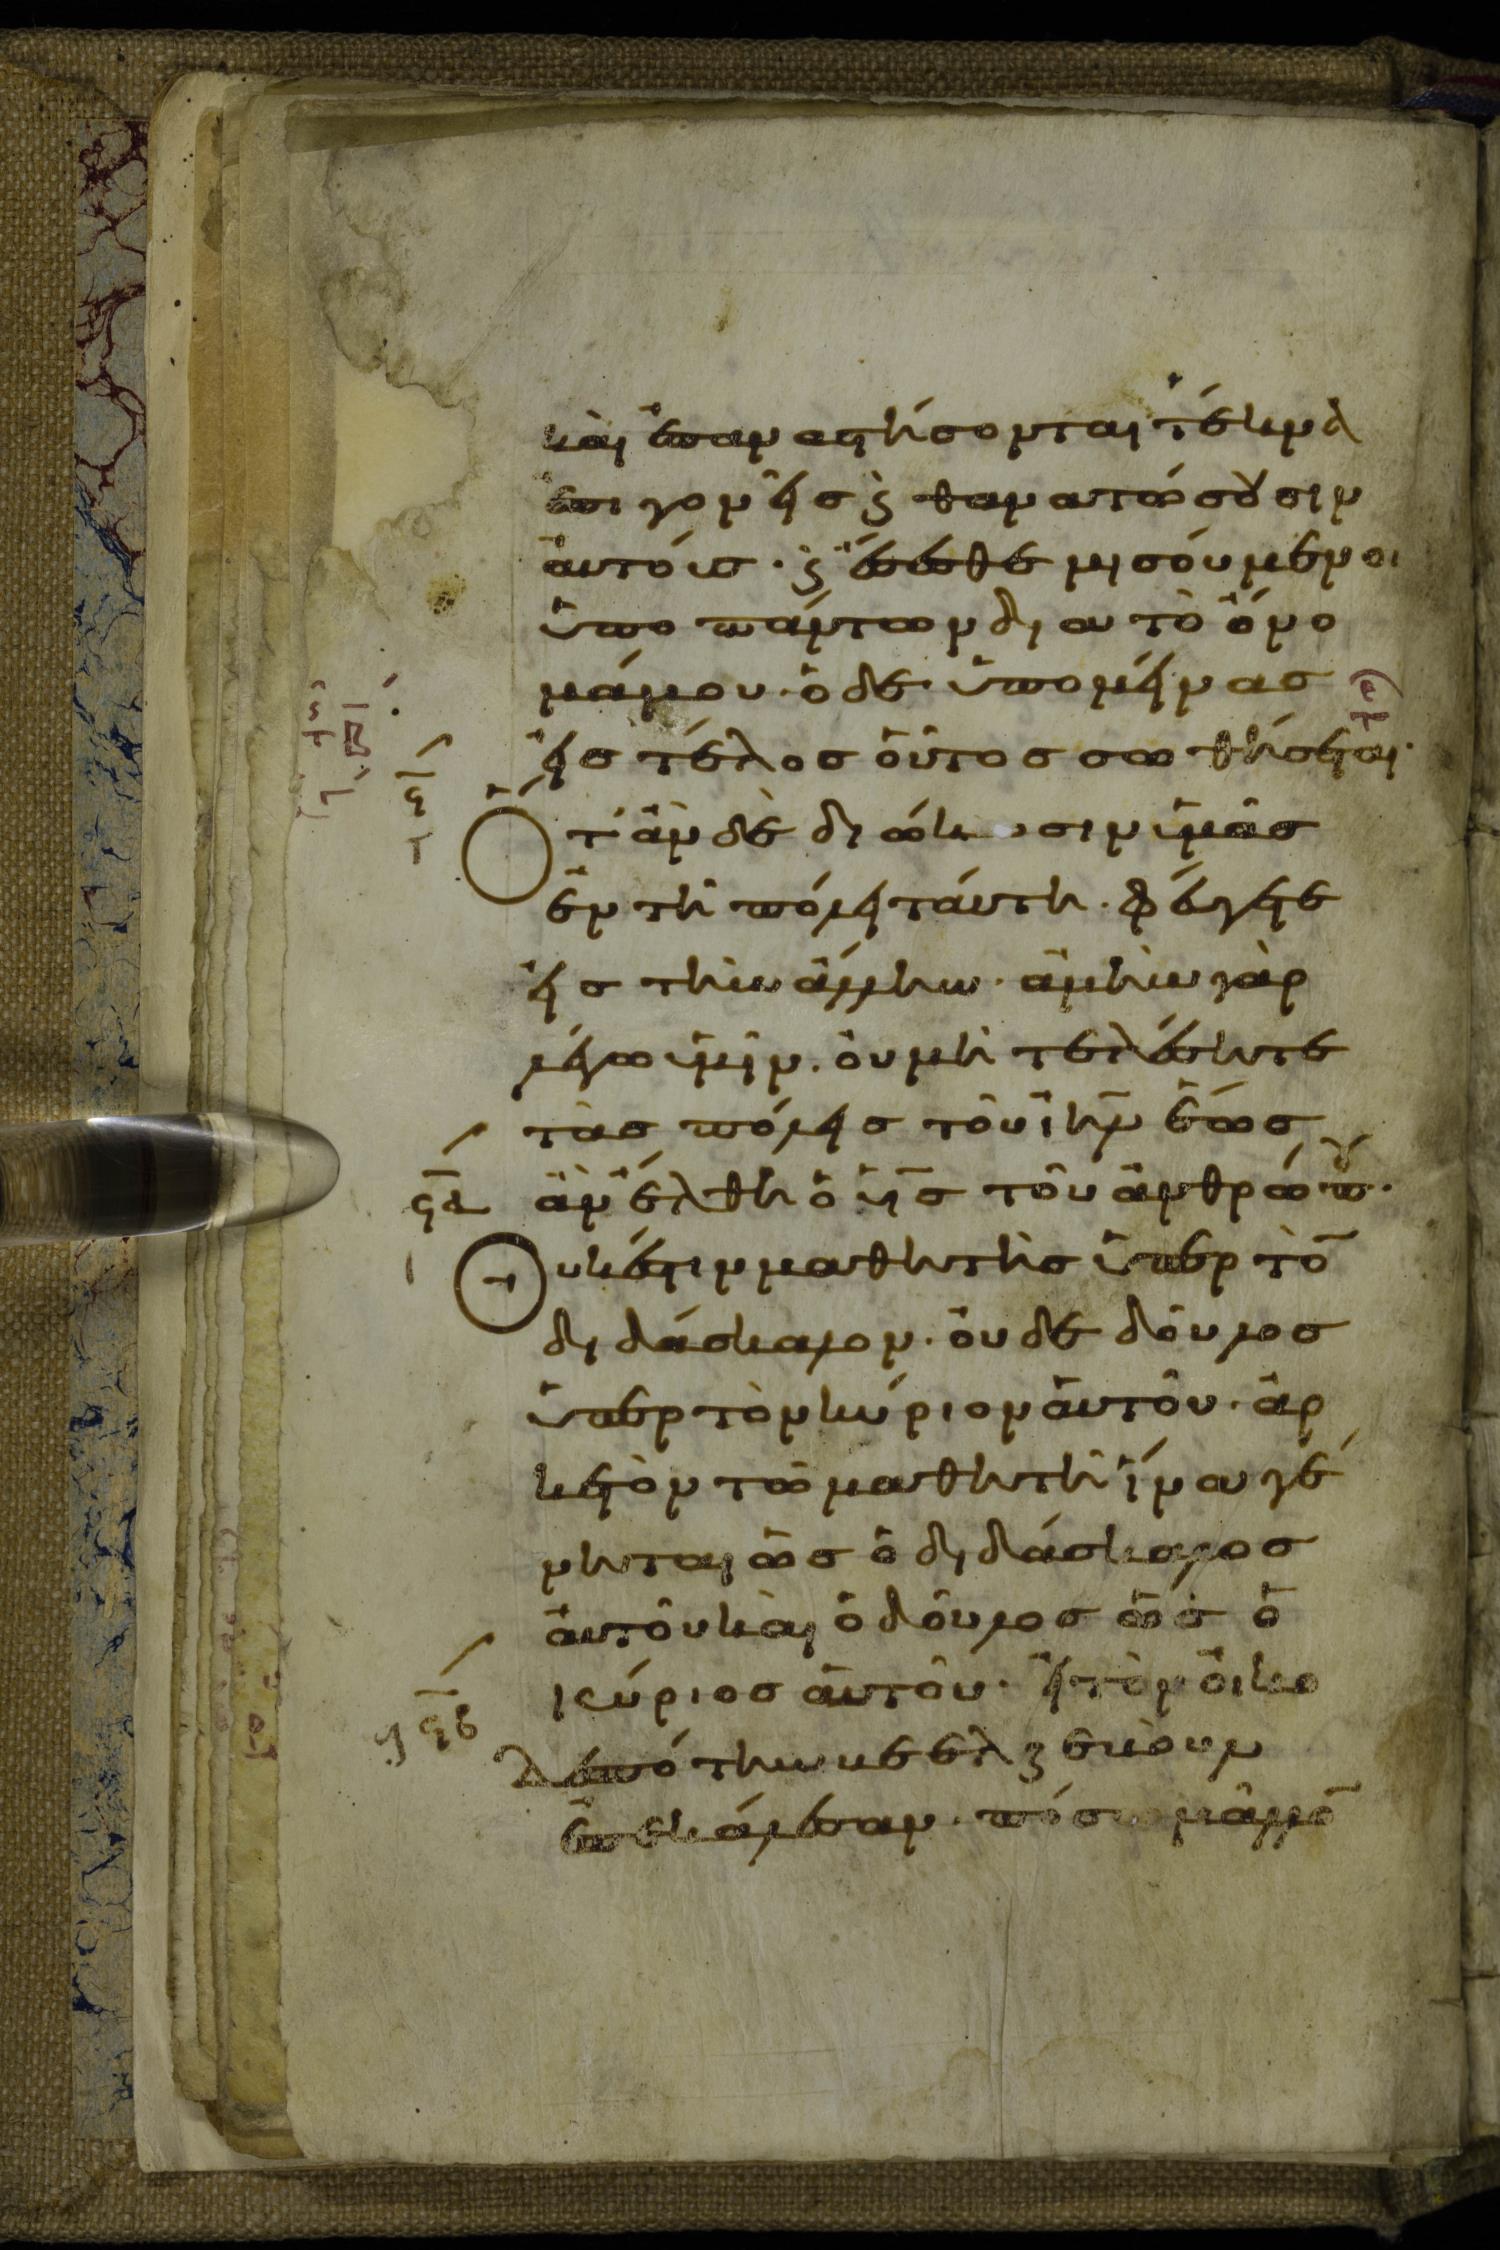 και επαναστήσονται τέκνα
επι γονεῖς ϗ θανατώσουσιν
αυτοὺς · ϗ ἔσεσθε μισούμενοι
ὑπο πάντων δια τὸ ὄνο
μά μου · ὁ δε ὑπομείνας
εἰς τέλος οὗτος σωθήσεται ·
Ὅταν δὲ διώκωσιν ὑμᾶς
ἐν τῆ πόλει ταύτη · φεύγετε
εἰς τὴν ἄλλην · ἀμὴν γὰρ
λέγω ὑμῖν · οὐ μὴ τελέσητε
τὰς πόλεις τοῦ ιηλ ἕως
ἂν ἔλθη ὁ υἱς τοῦ ἀνθρώπου ·
Ουκ έστιν μαθητὴς ὑπερ τὸ
διδάσκαλον · οὐδε δοῦλος
ὑπερ τὸν κύριον αὐτοῦ · ἀρ
κετὸν τῶ μαθητῆ ἵνα γέ
νηται ὡς ὁ διδάσκαλος
αὐτοῦ καὶ ὁ δοῦλος ὡς ὁ
κύριος αὐτοῦ · εἰ τὸν οἰκο
δεσπότην βεελζεβοὺλ
ἐπεκάλεσαν · πόσω μᾶλλο